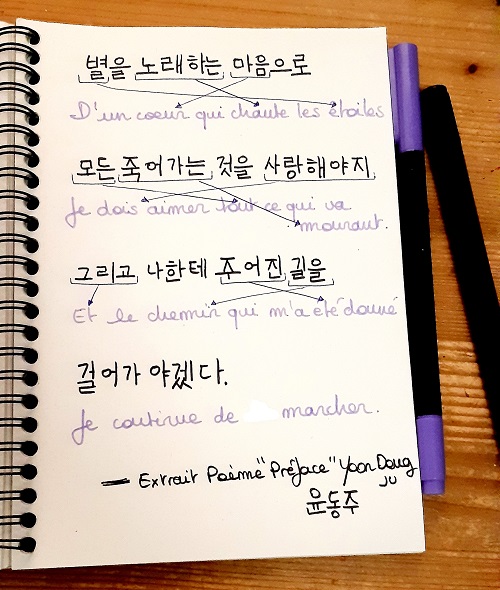 별을 노래하는 마음으로
D'un coeur qui chante les étoiles
모든 죽어가는 것을 사랑해야지
Je dois aimer tout ce qui va
mourant.
그리고 나한테 주어진 길을
Et le chemin qui m'a été donné
걸어가 야겠다.
Je continue de marcher.
— Extrait Poème "Préface" Yoon Dong
Ju
윤동주